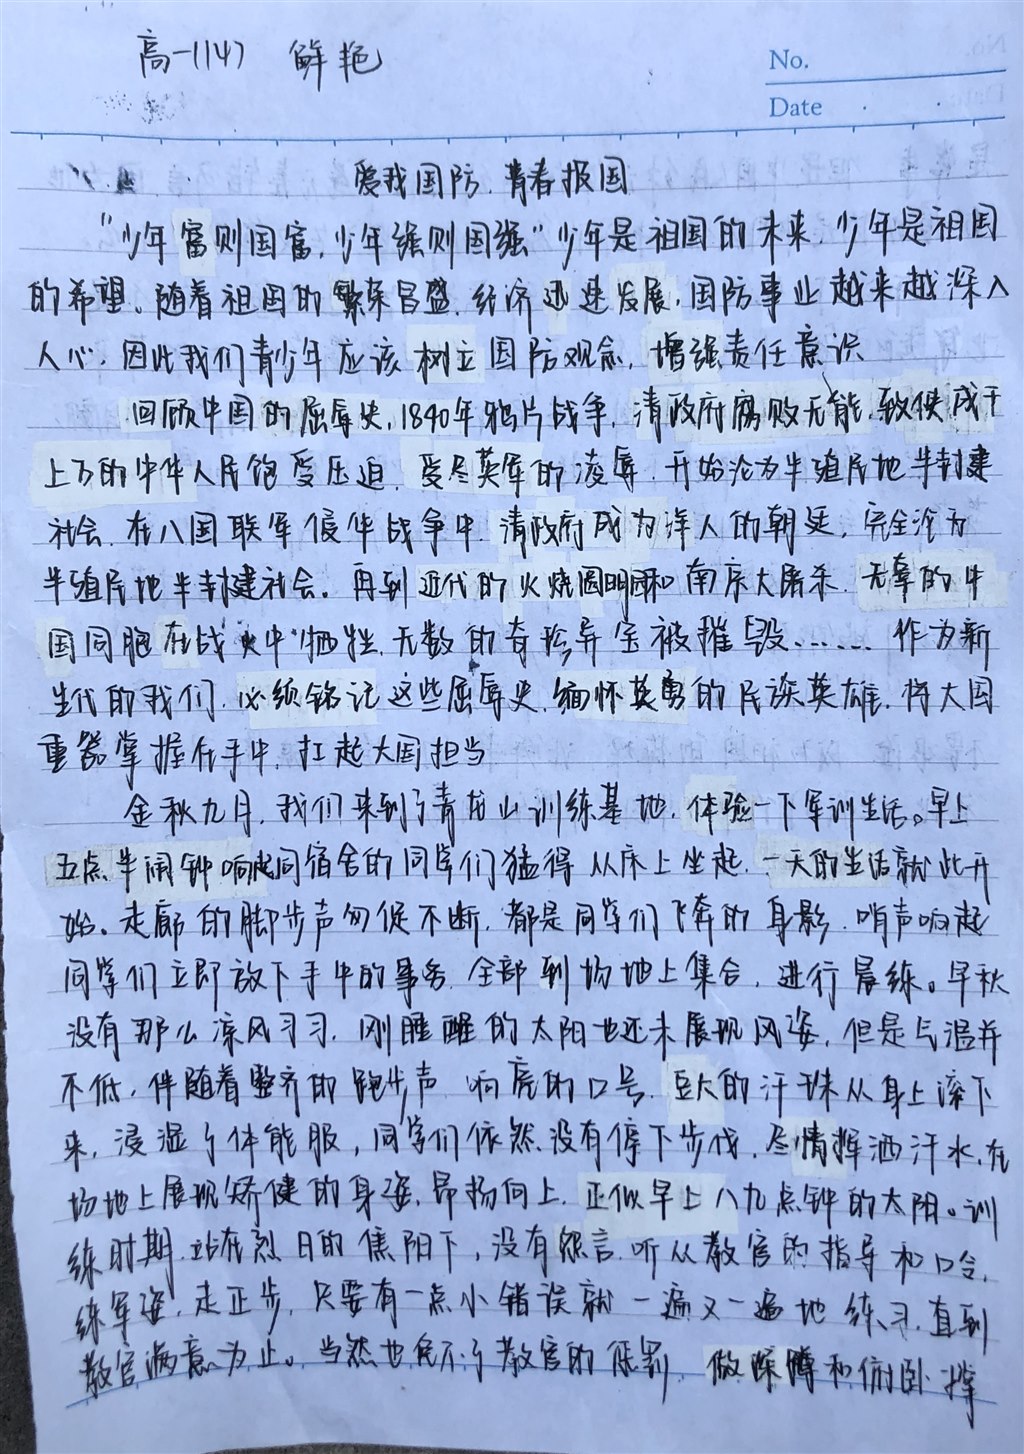 高一(14) 鲜艳
No.
Date
爱我国防,青春报国
“少年富则国富,少年强则国强”少年是祖国的未来,少年是祖国
的希望。随着祖国的繁荣昌盛,经济迅速发展,国防事业越来越深入
人心,因此我们青少年应该树立国防观念,增强责任意识
回顾中国的屈辱史,1840年鸦片战争,清政府腐败无能,致使成千
上万的中华人民饱受压迫,受尽英军的凌辱,开始沦为半殖民地半封建
社会,在八国联军侵华战争中,清政府成为洋人的朝廷,完全沦为
半殖民地半封建社会。再到近代的火烧圆明园和南京大屠杀,无辜的中
国同胞在战火中牺牲,无数的奇珍异宝被摧毁...... 作为新
生代的我们,必须铭记这些屈辱史,缅怀英勇的民族英雄,将大国
重器掌握在手中,扛起大国担当
金秋九月,我们来到了青龙山训练基地,体验一下军训生活。早上
五点半闹钟响起同宿舍的同学们猛得从床上坐起,一天的生活就此开
始。走廊的脚步声匆促不断,都是同学们飞奔的身影,哨声响起
同学们立即放下手中的事务,全部到场地上集合,进行晨练。早秋
没有那么凉风习习,刚睡醒的太阳也还未展现风姿,但是气温并
不低,伴随着整齐的跑步声,响亮的口号,豆大的汗珠从身上滚下
来,浸湿了体能服,同学们依然没有停下步伐,尽情挥洒汗水,在
场地上展现矫健的身姿,昂扬向上,正似早上八九点钟的太阳。训
练时期,站在烈日的焦阳下,没有怨言,听从教官的指导和口令,
练军姿,走正步,只要有一点小错误就一遍又一遍地练习,直到
教官满意为止。当然也免不了教官的惩罚,做深蹲和俯卧撑